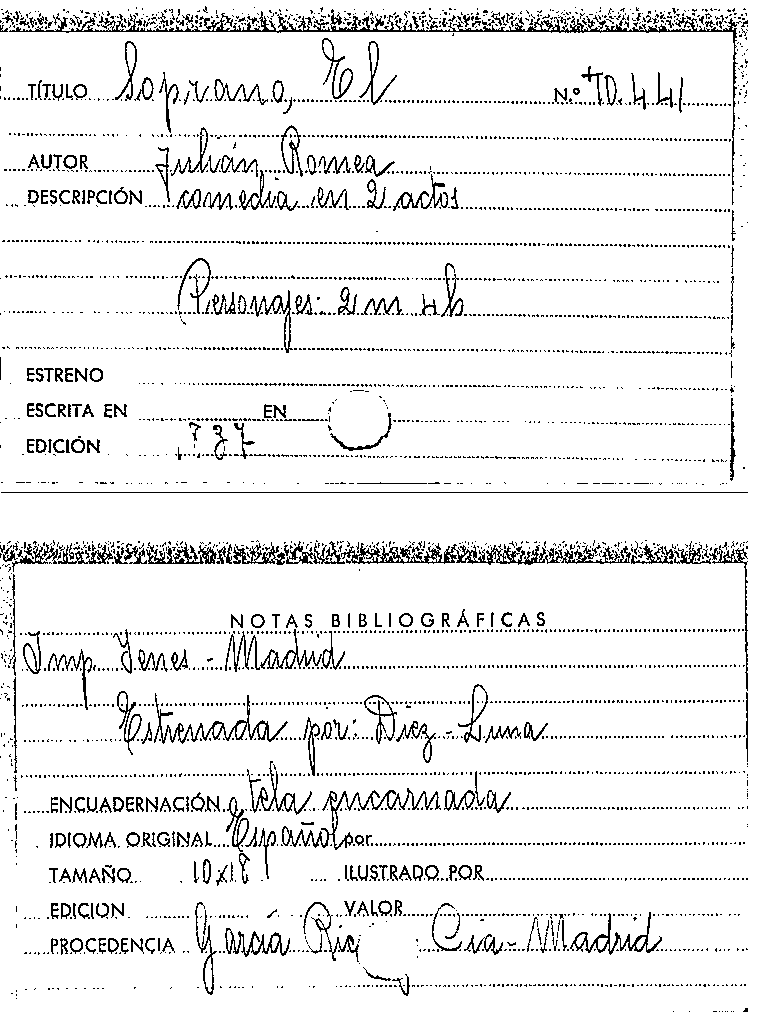 TÍTULO Soprano, El N.º 10.441
AUTOR Julián Romea
DESCRIPCIÓN comedia en 2 actos
Personajes: 2 m 4 h
ESTRENO
ESCRITA EN EN
EDICIÓN
NOTAS BIBLIOGRÁFICAS
Imp Yenes - Madrid
Estrenada por: Diez - Luna
ENCUADERNACIÓN tela encarnada
IDIOMA ORIGINAL Español por
TAMAÑO 10x18 ILUSTRADO POR
EDICION VALOR
PROCEDENCIA García Ric Cia - Madrid